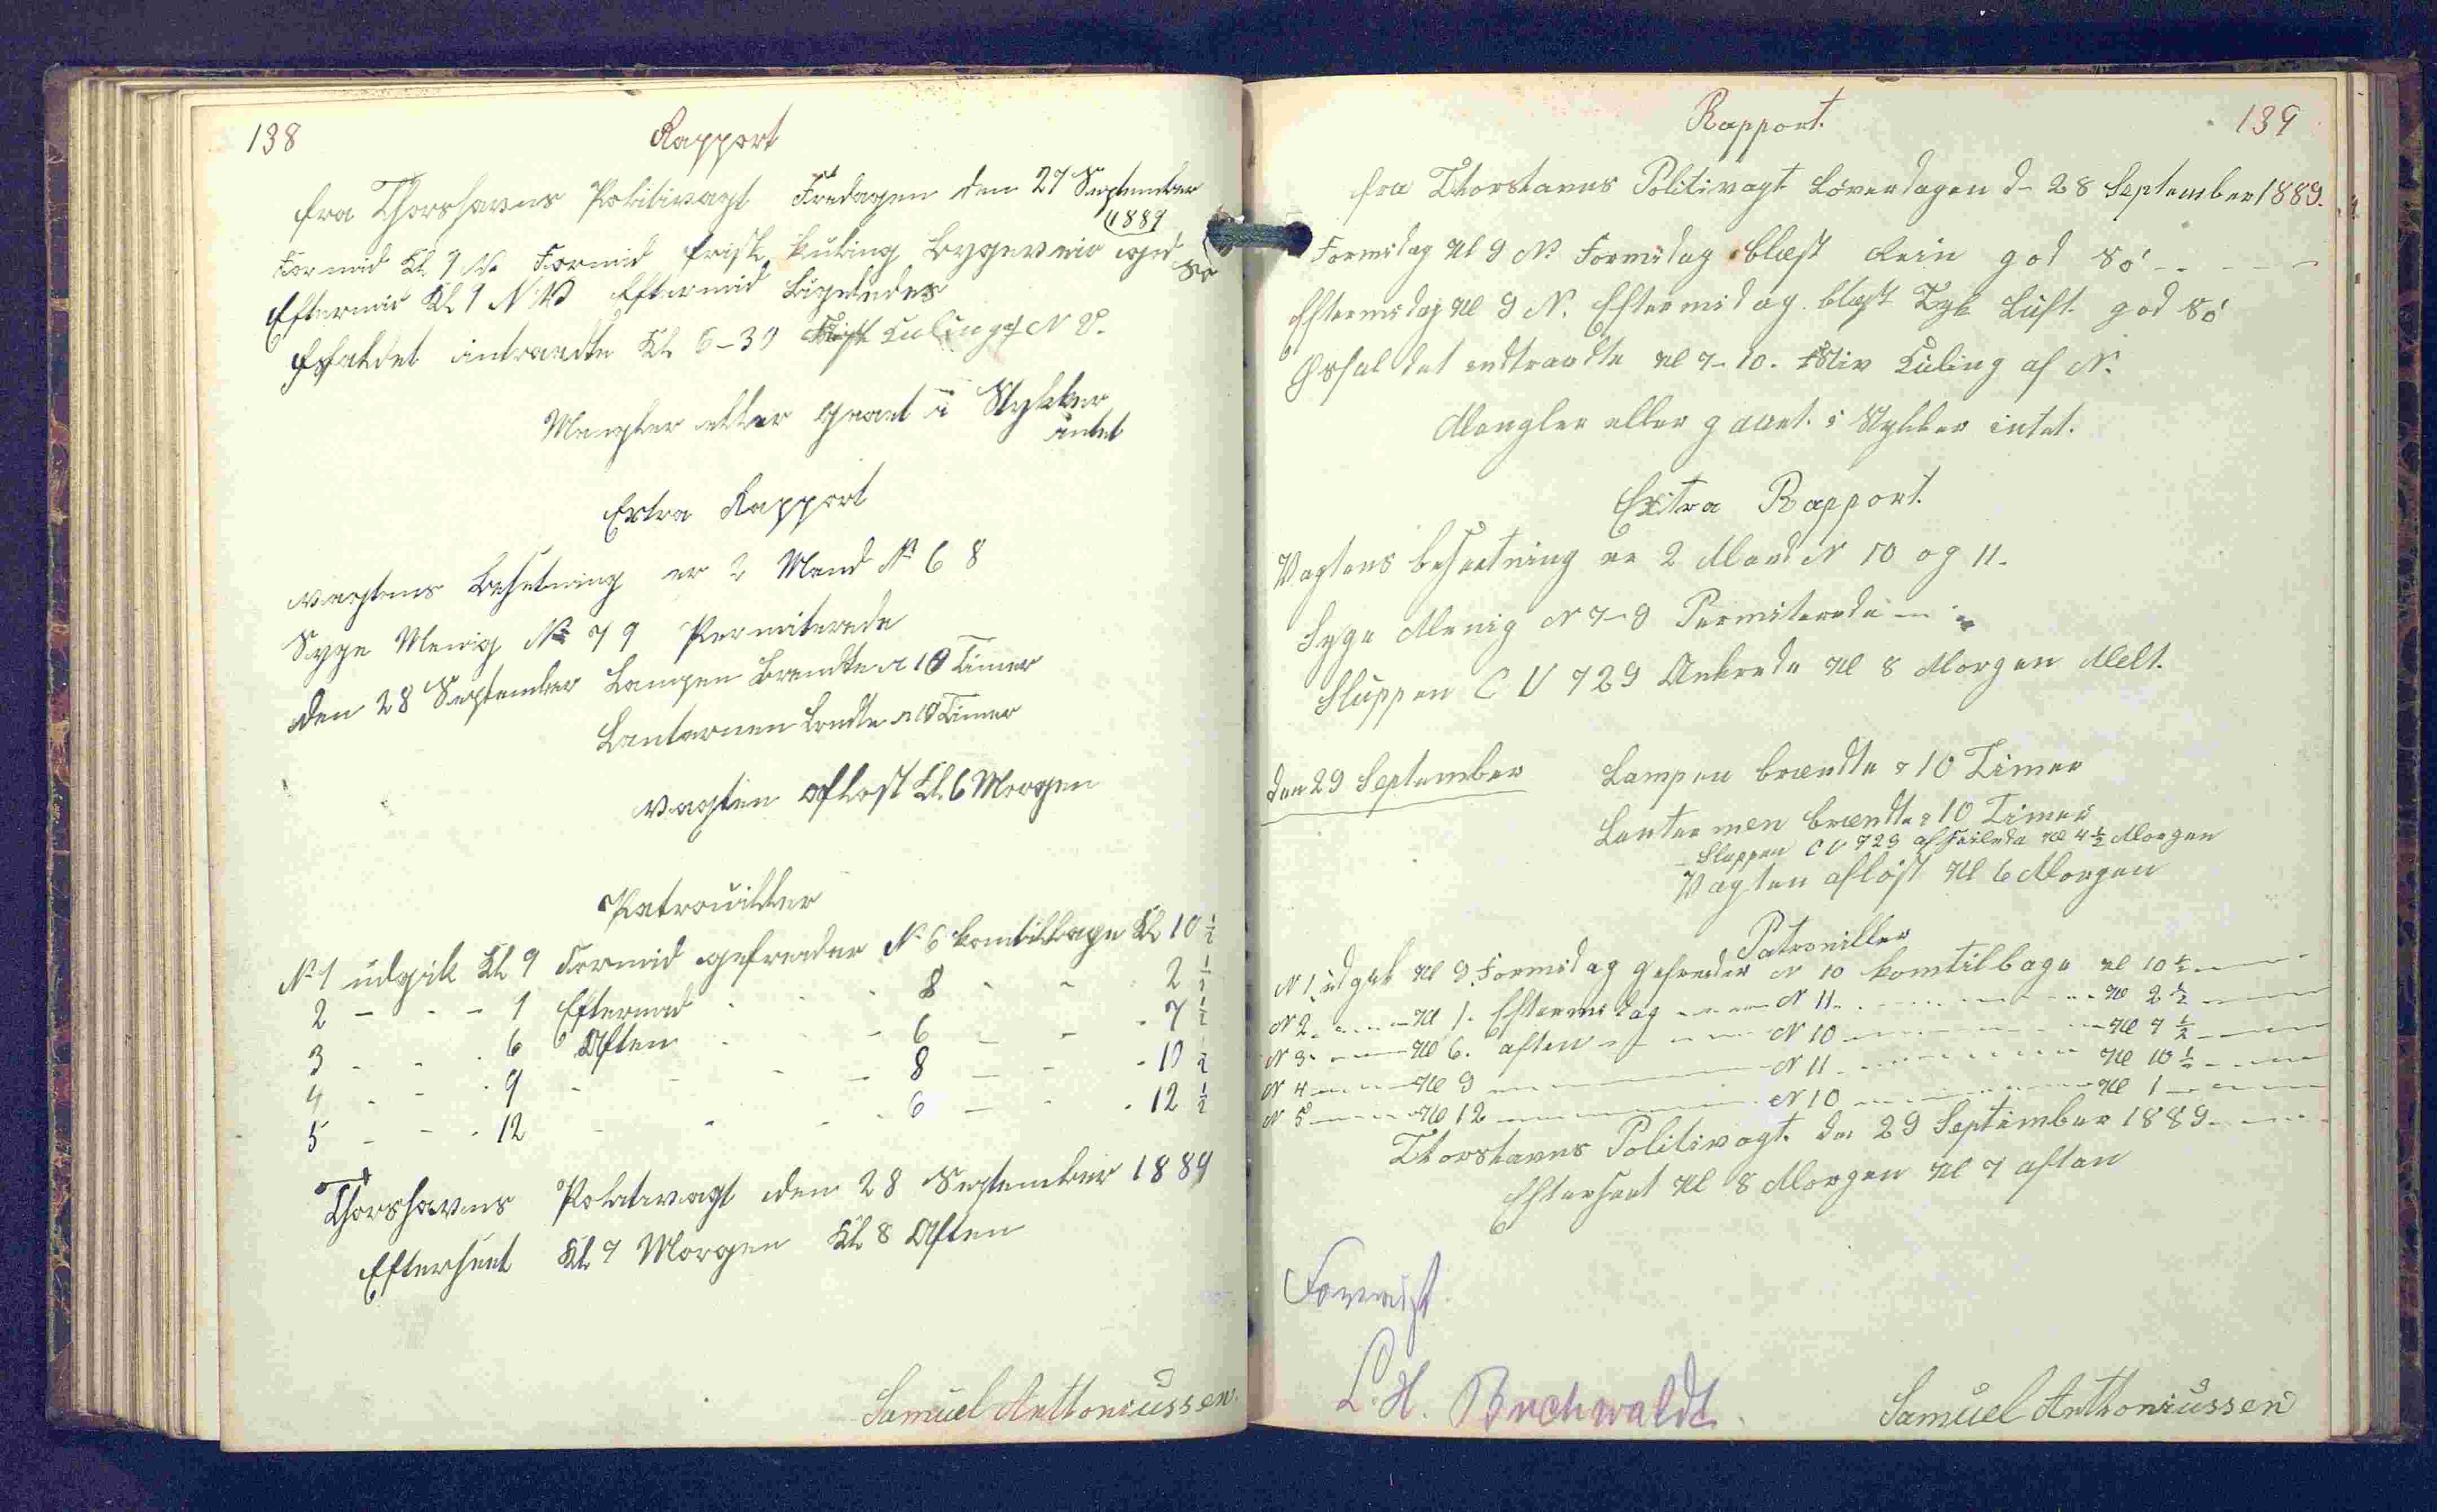 138
Rapport
fra Thorshavns Politivagt Fredagen den 27 September
1889
Formid Kl 9 N. Formid frisk Kuling Bygeveir god Sø
Eftermid Kl 9 N V Eftermid Ligeledes
Esfaldet intraadte Kl 6-30 Frisk Kuling af N V.
Mangler eller gaaet i Stykker
intet
Extra Rapport
vagtens Besetning er 2 Mand N 6 8
Syge Menig No 7 9 Permiterede
den 28 September Lampen Brendte i 10 Timer
Lanternen brendte i 10 Timer
vagten afløst Kl. 6 Morgen
Patrouiller
No 1 udgik Kl 9 Formid gefreider N 6 komtilbage Kl 10 ½
2 - - - 1 Eftermid - - - 8 - - 2 ½
3 - - - 6 Aften - - - 6 - - 7 ½
4 - - - 9 - - - 8 - - 10 ½
5 - - - 12 - - - 6 - - 12 ½
Thorshavns Politivagt den 28 September 1889
Efterseet Kl 7 Morgen Kl 8 Aften
Samuel Anthoniussen.
Rapport.
139
fra Thorshavns Politivagt Løverdagen d- 28 September 1889.
Formidag Kl 9 N. Formidag blæst Rein god Sö - - - -
Eftermidag Kl 9 N. Eftermidag blæst Tyk Luft god Sö
Øsfaldet indtraadte Kl 7-10. Stiv Kuling af N.
Mangler eller gaaet i Stykker intet.
Extra Rapport.
Vagtens besætning er 2 Mand N 10 og 11.
Syge Menig N 7-9 Permiterede - -
Sluppen C V 729 Ankrede Kl 8 Morgen Melt.
den 29 September Lampen brændte i 10 Timer
Lanternen brændte i 10 Timer
Sluppen C V 729 afseilede Kl 4 ½ Morgen
Vagten afløst Kl 6 Morgen
Patroniller
N 1 udgik Kl 9. Formidag gefreider N 10 komtilbage Kl 10 ½ - - -
N 2. - - - Kl 1. Eftermidag - - - N 11 - - - Kl 2 ½ - - -
N 3. - - - Kl 6. aften - - - N 10 - - - Kl 7 ½ - - -
N 4 - - - Kl 9 - - - N 11 - - - Kl 10 ½ - - -
N 5 - - - Kl 12 - - - N 10 - - - Kl 1 - - -
Thorshavns Politivagt. den 29 September 1889 - - -
Efterseet Kl 8 Morgen Kl 7 aften
Forevist
L. H. Buchwaldt.
Samuel Anthoniussen